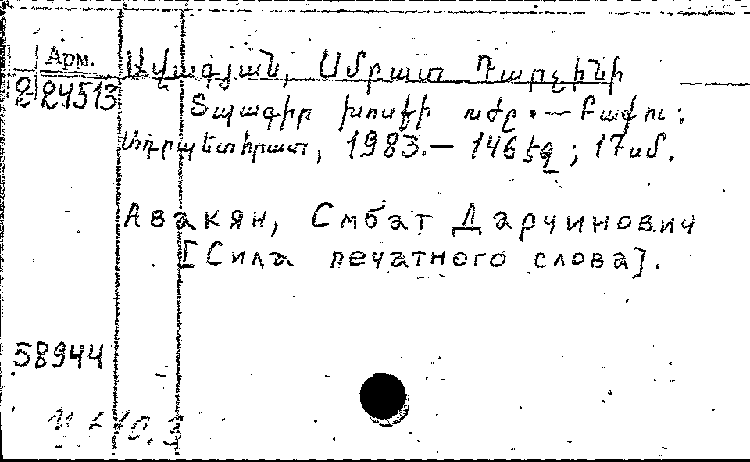 Арм.
2 24513
Ավագյան, Սմբատ Դարչինի
Տպագիր խոսքի ուժը. — Բաքու:
Ադրպետհրատ, 1983. — 146 էջ; 17 սմ.
Авакян, Смбат Дарчинович
[Сила печатного слова].
58944